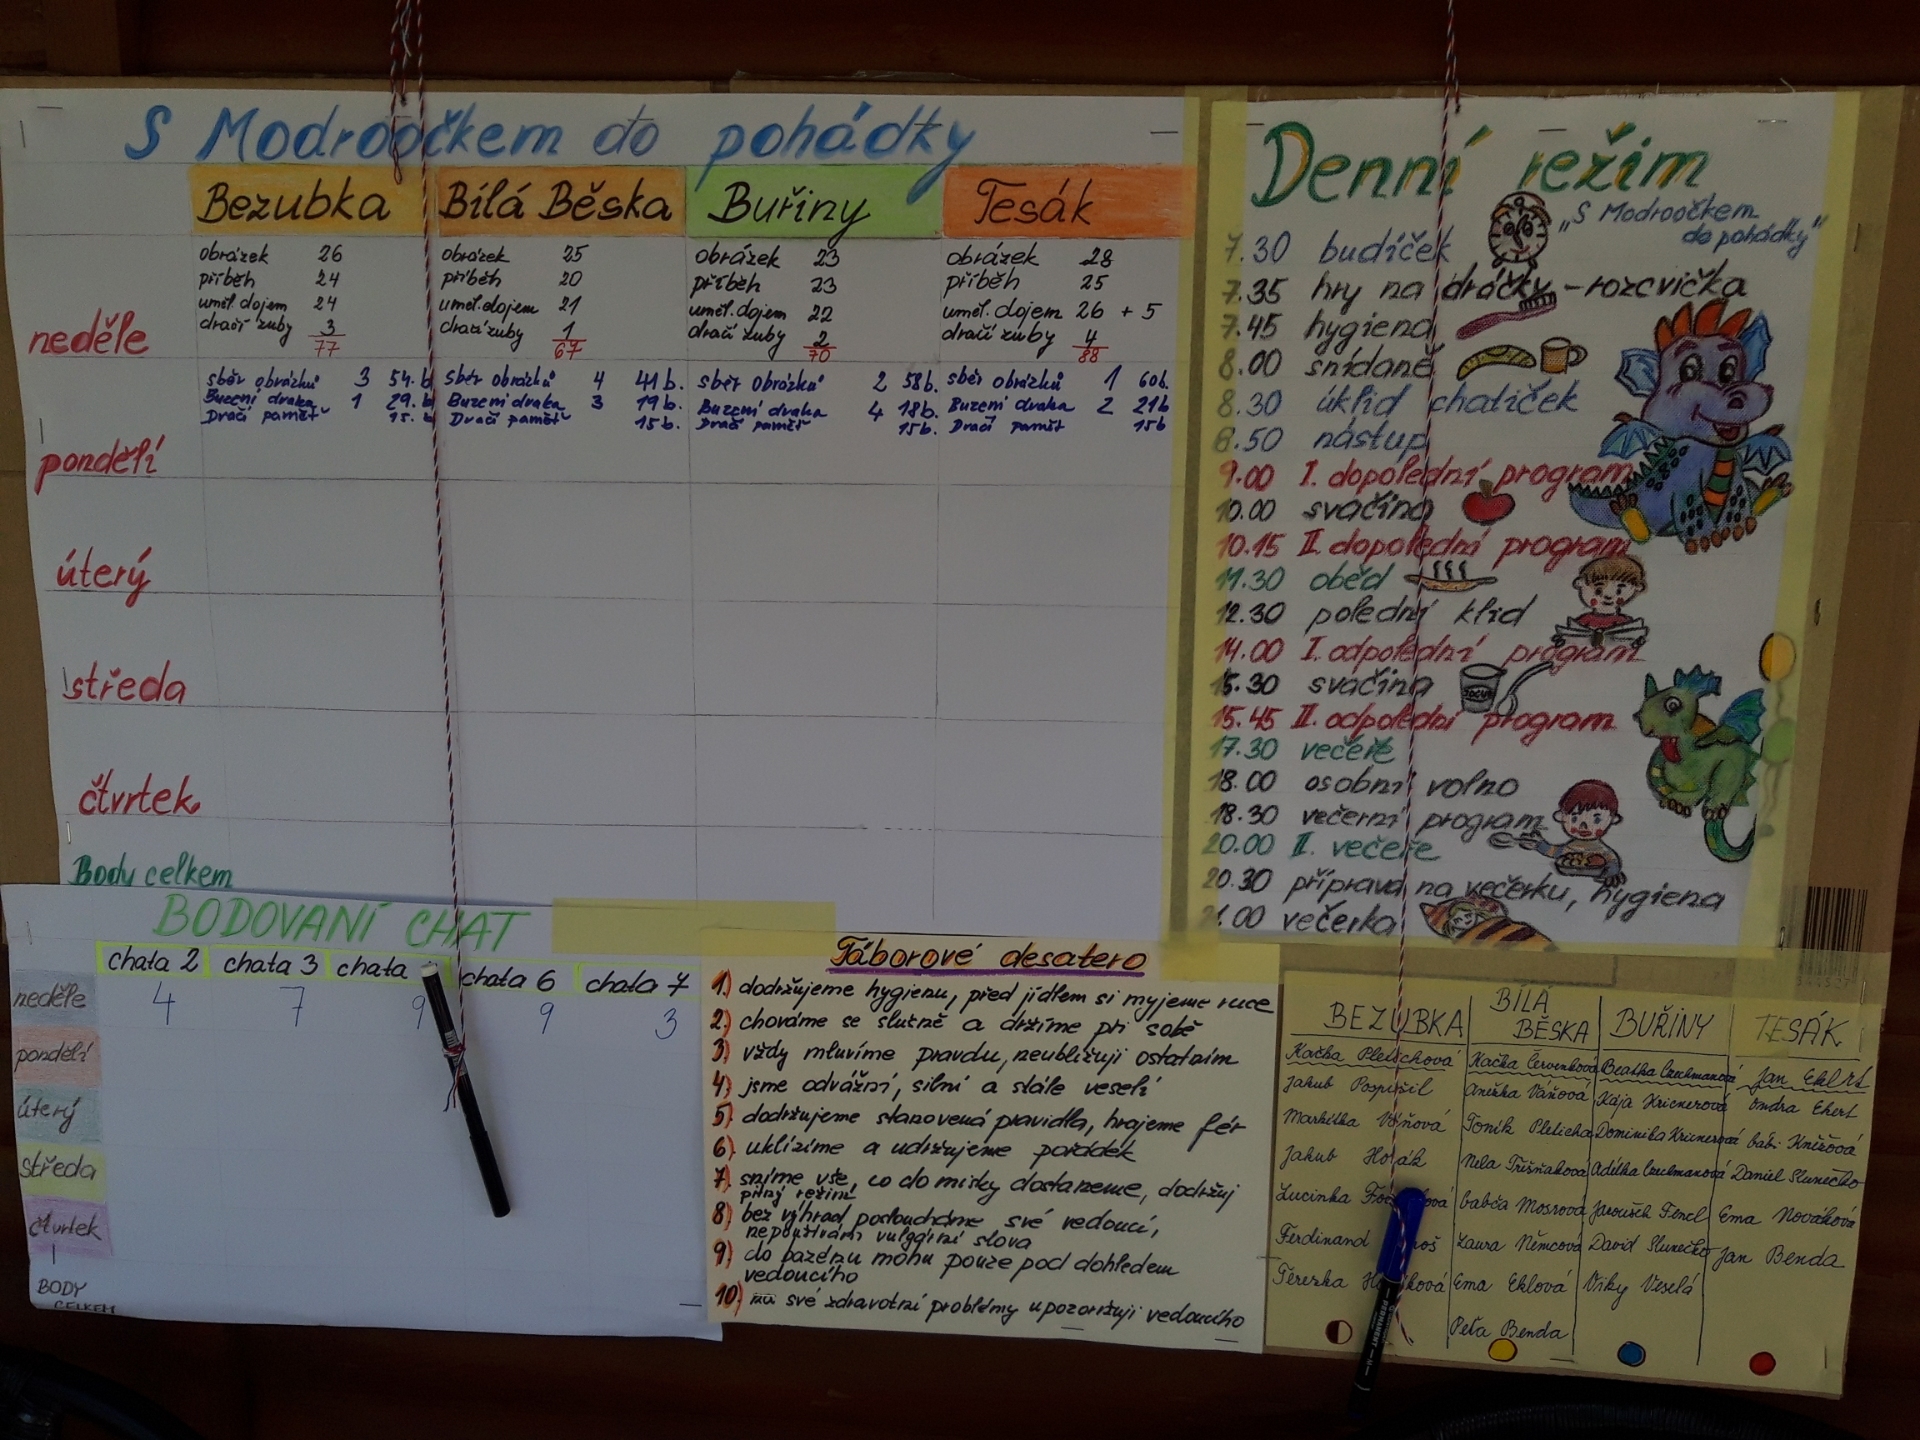 S Modroočkem do pohádky
Bezubka Bílá Běska Buřiny Tesák
neděle
obrázek 26
příběh 24
uměl. dojem 24
dračí zuby 3
77
obrázek 25
příběh 20
uměl. dojem 21
dračí zuby 1
67
obrázek 23
příběh 23
uměl. dojem 22
dračí zuby 2
70
obrázek 28
příběh 25
uměl. dojem 26 + 5
dračí zuby 4
88
pondělí
sběr obrázků 3 54. b
Buzení draka 1 29. b
Dračí paměť 15. b
sběr obrázků 4 41 b.
Buzení draka 3 19 b.
Dračí paměť 15 b.
sběr obrázků 2 58 b.
Buzení draka 4 18 b.
Dračí paměť 15 b.
sběr obrázků 1 60 b.
Buzení draka 2 21 b
Dračí paměť 15 b
úterý
středa
čtvrtek
Body celkem
Denní režim
„S Modroočkem
do pohádky"
7.30 budíček
7.35 hry na dráčky - rozcvička
7.45 hygiena
8.00 snídaně
8.30 úklid chatiček
8.50 nástup
9.00 I. dopolední program
10.00 svačina
10.15 II. dopolední program
11.30 oběd
12.30 polední klid
14.00 I. odpolední program
15.30 svačina
15.45 II. odpolední program
17.30 večeře
18.00 osobní volno
18.30 večerní program
20.00 II. večeře
20.30 příprava na večerku, hygiena
21.00 večerka
BODOVANÍ CHAT
chata 2 chata 3 chata chata 6 chata 7
neděle 4 7 9 9 3
pondělí
úterý
středa
čtvrtek
BODY
CELKEM
Táborové desatero
1) dodržujeme hygienu, před jídlem si myjeme ruce
2) chováme se slušně a držíme při sobě
3) vždy mluvíme pravdu, neubližuji ostatním
4) jsme odvážní, silní a stále veselí
5) dodržujeme stanovená pravidla, hrajeme fér
6) uklízíme a udržujeme pořádek
7) sníme vše, co do misky dostaneme, dodržuj
pitný režim
8) bez výhrad posloucháme své vedoucí,
nepoužívám vulgární slova
9) do bazénu mohu pouze pod dohledem
vedoucího
10) na své zdravotní problémy upozorňuji vedoucího
BEZUBKA
Kačka Pletichová
Jakub Pospíšil
Markétka Váňová
Jakub Horák
Lucinka
Ferdinand
Terezka
BÍLÁ
BĚSKA
Kačka Červenková
Anežka Váňová
Toník Pleticha
Nela Třešňáková
babča Mosrová
Laura Němcová
Ema Eklová
Peťa Benda
BUŘINY
Beatka Czulmanová
Kája Kricnerová
Dominika Kricnerová
Adélka Czulmanová
Jaroušek Fencl
David Slunečko
Viky Veselá
TESÁK
Jan Eklrt
Ondra Ekert
bábi Kněžová
Daniel Slunečko
Ema Nováková
Jan Benda
PERMANENT